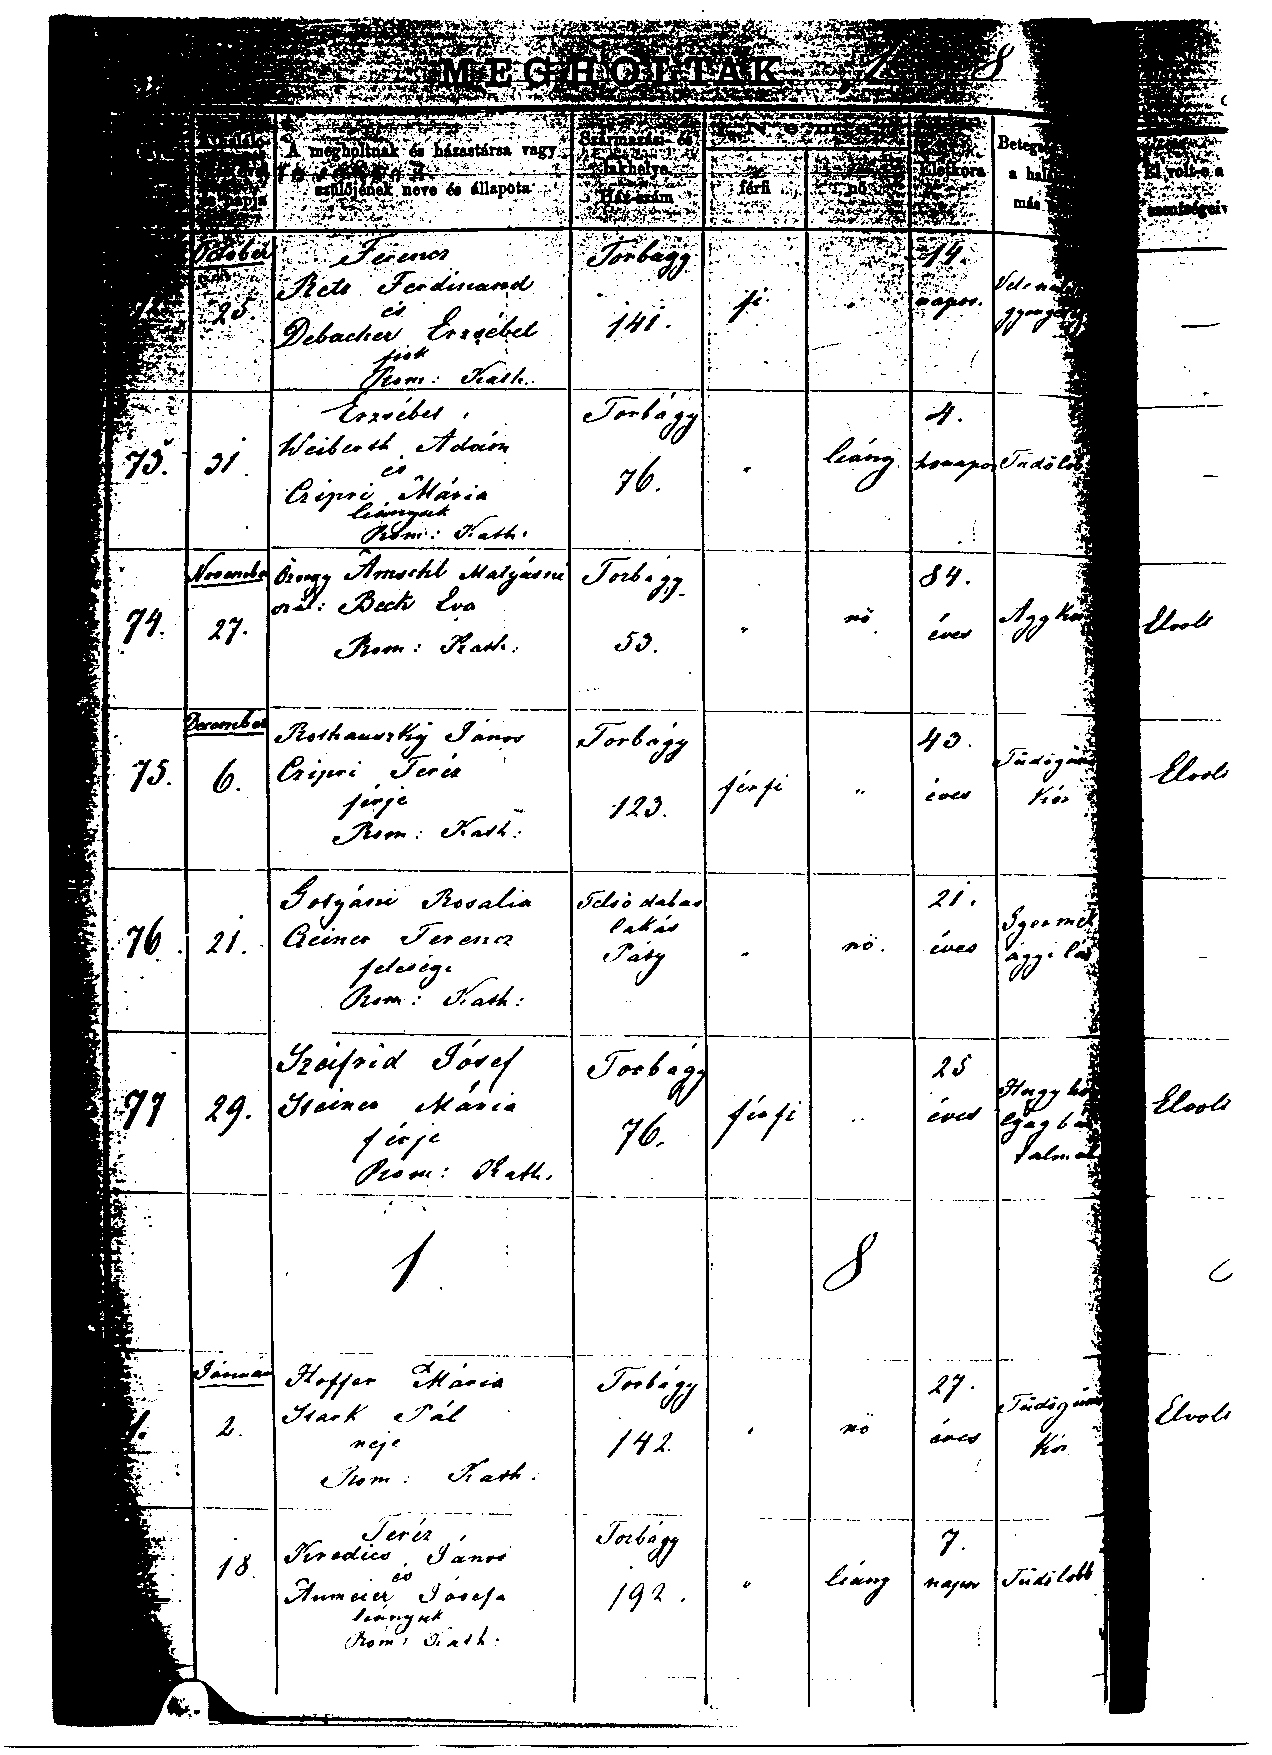 MEGHOLTAK 8
A megholtnak és házastársa vagy
szülőjének neve és állapota
Származási- és
lakhelye.
Ház-szám
férfi
nő
Életkora
a halál
más
El volt-e a
szentségeiv
October
25.
Ferencz
Rets Ferdinand
és
Debacher Erzsébet
fiok
Rom: Kath.
Torbágy
141.
fi.
"
14.
napos.
31.
73.
Erzsébet
Weiberth Ádám
és
Czipri Mária
leányuk
Rom: Kath.
Torbágy
76.
"
leány
4.
honapos
Tüdőlob
74.
November
27.
Özvegy Amschl Matyásné
szül: Beck Eva
Rom: Kath:
Torbágy
53.
"
nő
84.
éves
Aggkór
Elvolt
75.
December
6.
Rothauszky János
Czipri Teréz
férje
Rom: Kath:
Torbágy
123.
férfi
"
43.
éves
Tüdőgüm
Kór
Elvolt
76.
21.
Golyáni Rosalia
Greiner Ferencz
felesége
Rom: Kath:
Felső dabas
lakás
Páty
"
nő.
21.
éves
Gyermek
ágyi láz
77
29.
Szeifrid József
Steiner Mária
férje
Rom: Kath.
Torbágy
76.
férfi
"
25
éves
Hagy
Elvolt
1 8
1.
Január
2.
Hoffer Mária
Stark Pál
neje
Rom: Kath.
Torbágy
142.
"
nő
27.
éves
Tüdőgüm
Kór
Elvolt
18.
Teréz
Kredics János
és
Aumeier Jósefa
leányuk
Rom: Kath:
Torbágy
192.
"
leány
7.
napos
Tüdőlobb